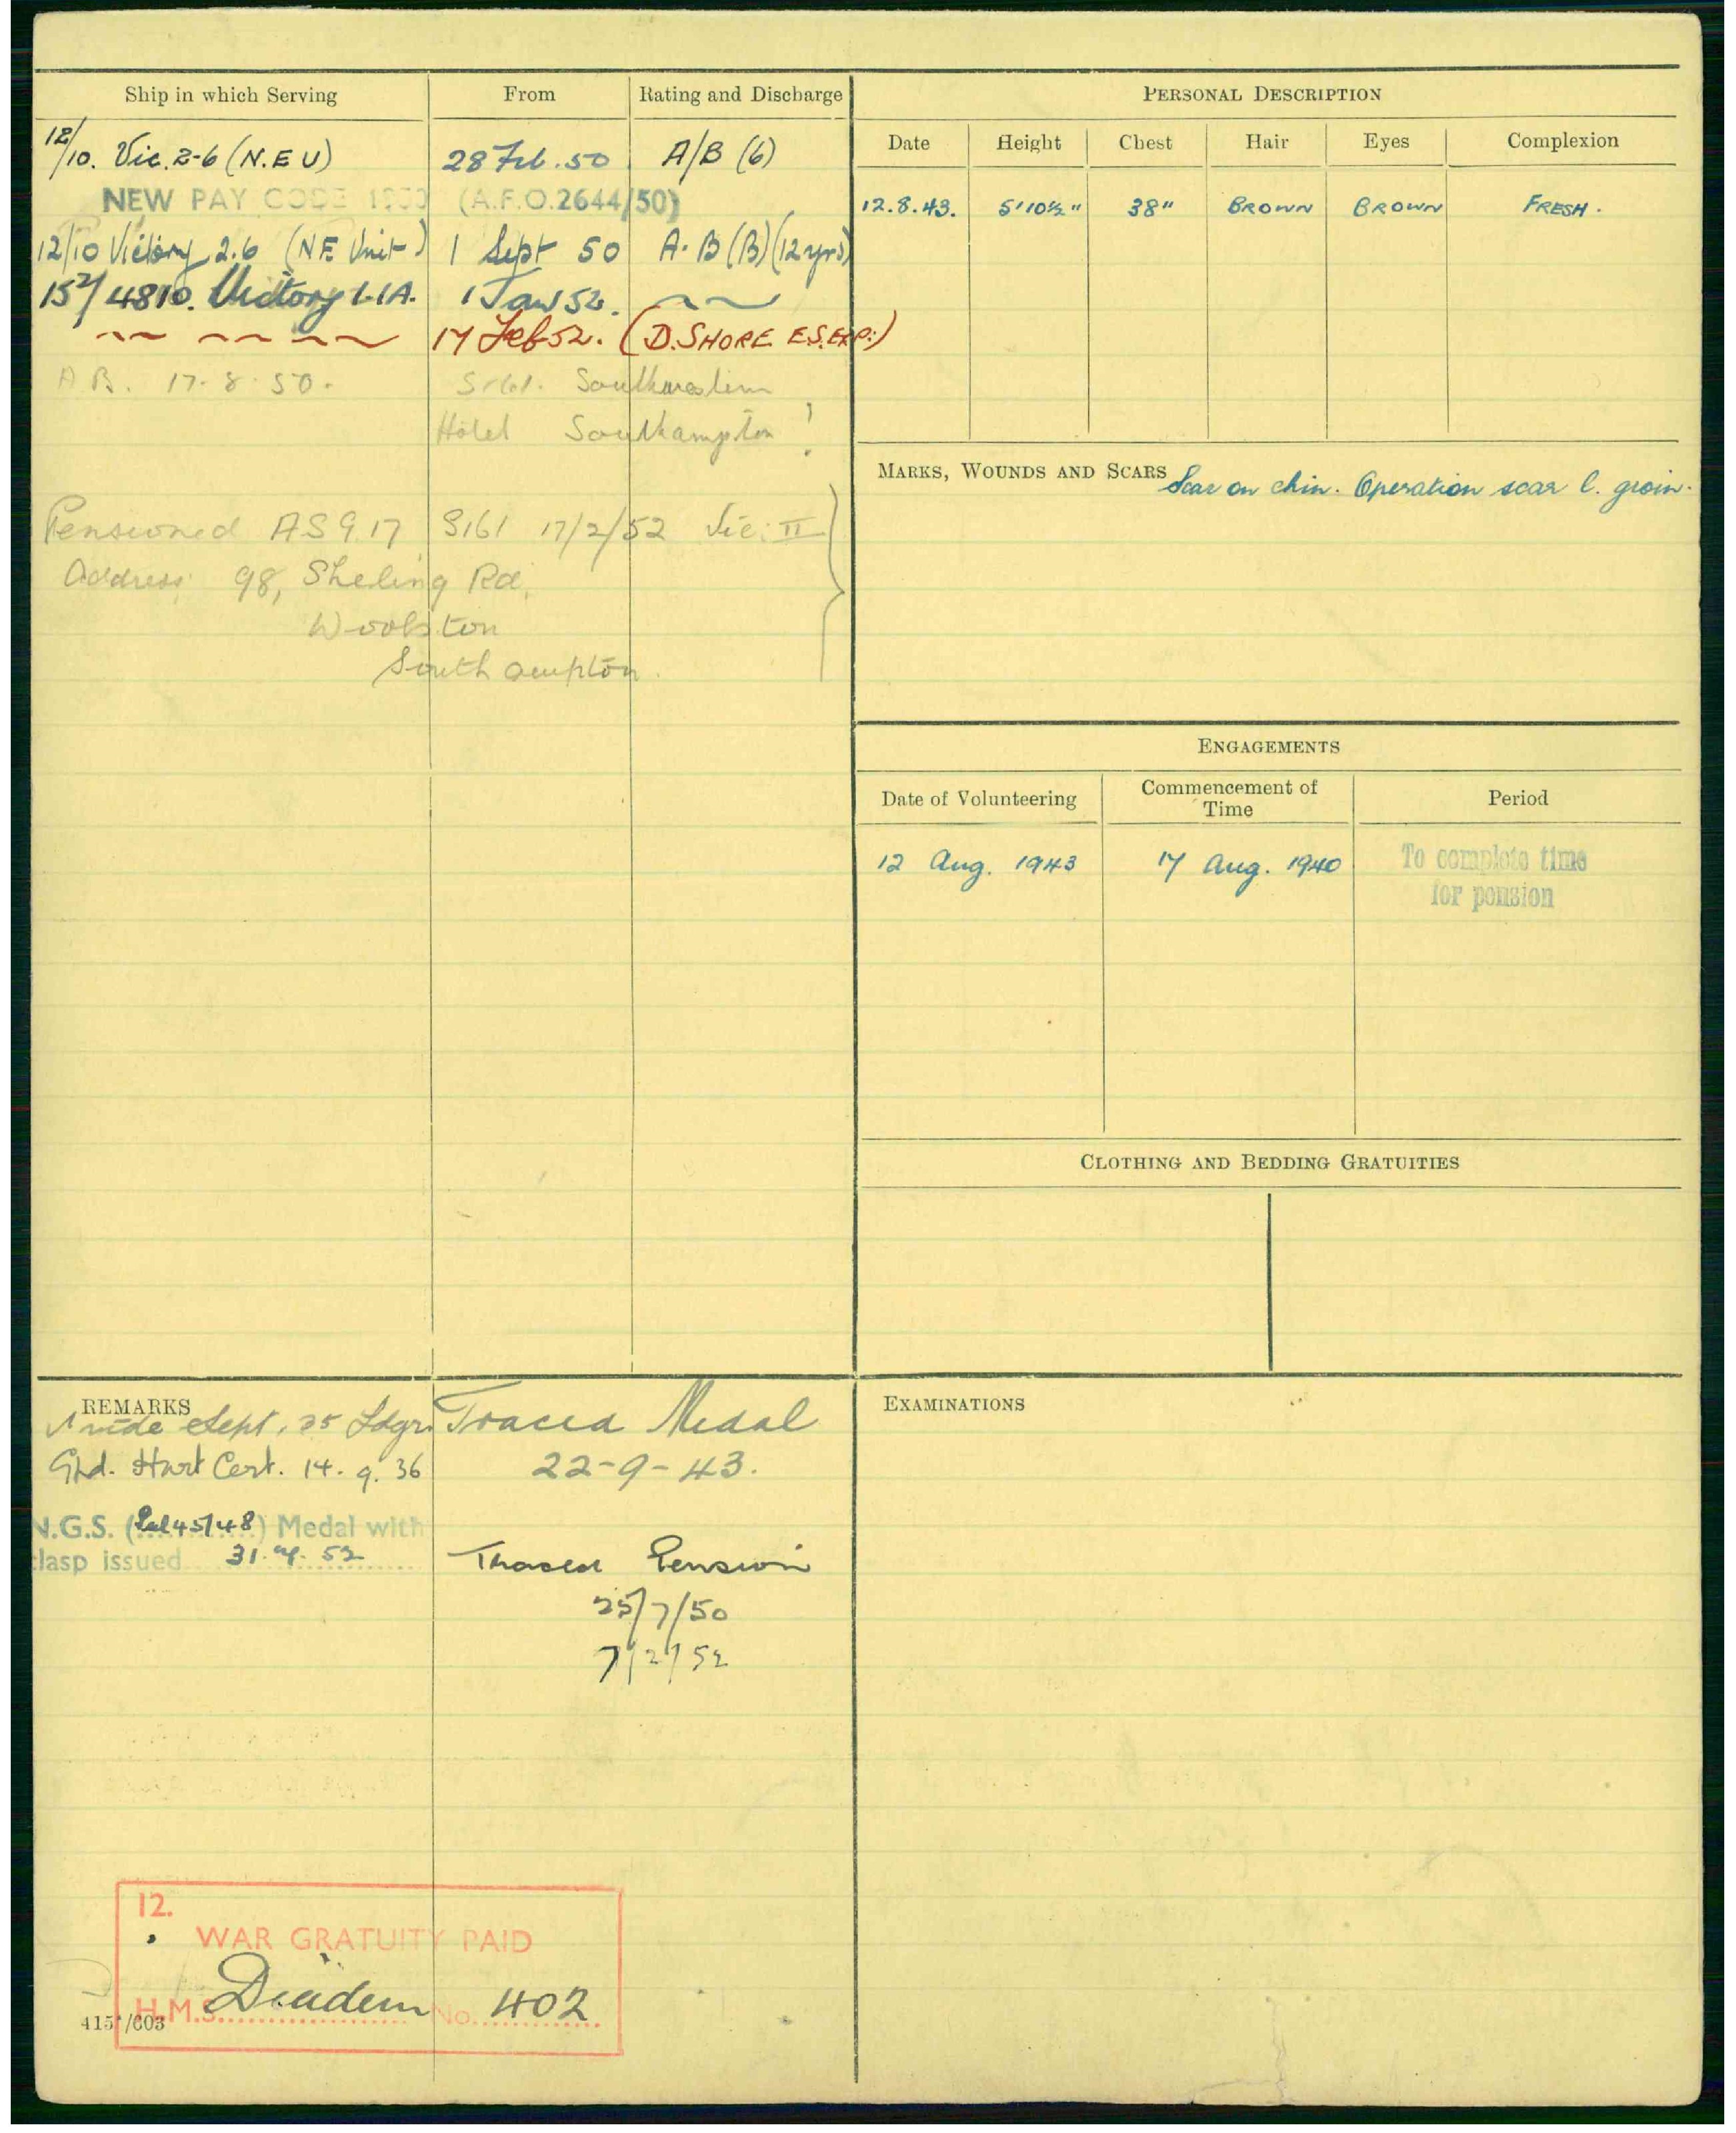 Ship in which Serving From Rating and Discharge
12/10. Vic. 2-6 (N.E U) 28 Feb. 50 A/B (6)
NEW PAY CODE 1950 (A.F.O.2644/50)
12/10 Victory 2.6 (NE Unit) 1 Sept 50 A.B (B) (12 yrs)
15²/4810. Victory 1.1A. 1 Jan 52. ~ ~
~~ ~~ ~~ ~ 17 Feb 52. (D. SHORE E.S.EXP:)
A.B. 17.8.50. S161. Southwestern
Hotel Southampton
Pensioned AS 917 S161 17/2/52 Vic: II
Address 98, Sheling Rd,
Woolston
Southampton.
PERSONAL DESCRIPTION
Date Height Chest Hair Eyes Complexion
12.8.43. 5'10½" 38" BROWN BROWN FRESH.
MARKS, WOUNDS AND SCARS Scar on chin. Operation scar l. groin.
ENGAGEMENTS
Date of Volunteering Commencement of Time Period
12 Aug. 1943 17 Aug. 1940 To complete time
for pension
CLOTHING AND BEDDING GRATUITIES
REMARKS
vide Sept. 35 Ldgr.
Gtd. Hurt Cert. 14.9.36
N.G.S. (Pal 45/48) Medal with
clasp issued 52
Traced Medal
22-9-43.
Traced Pension
25/7/50
7/2/52
EXAMINATIONS
12.
WAR GRATUITY PAID
H.M.S. Diadem No. 402
415*/603